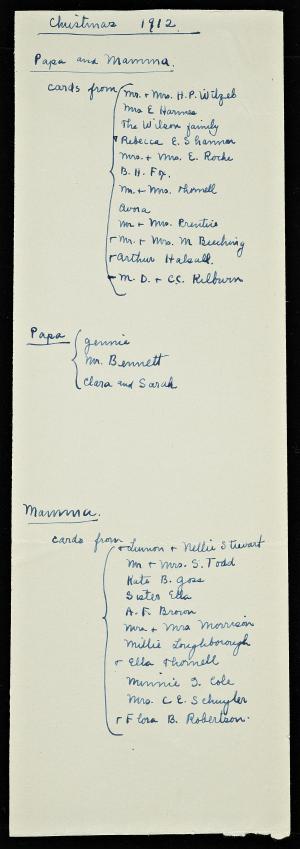 Christmas 1912.
Papa and Mamma.
cards from
Mr. + Mrs. H. P.
Mrs E Harmes
The Wilson family
Rebecca E. Shannon
Mrs. + Mrs. E. Roche
B. H. Fox.
Mr. + Mrs. Thomell
Avora
Mr + Mrs. Prentice
Mr. + Mrs. M Beeching
Arthur Halsall.
M. D. + C.C. Kilburn
Papa
Jennie
Mr. Bennett
Clara and Sarah
Mamma.
cards from
+ Nellie Stewart
Mr + Mrs. S. Todd
Kate B. Goss
Sister Ella
A. F. Brown
Mr. + Mrs Morrison
Millie Loughborough
Ella Thomell
Minnie S. Cole
Mrs. C E. Schuyler
Flora B. Robertson.